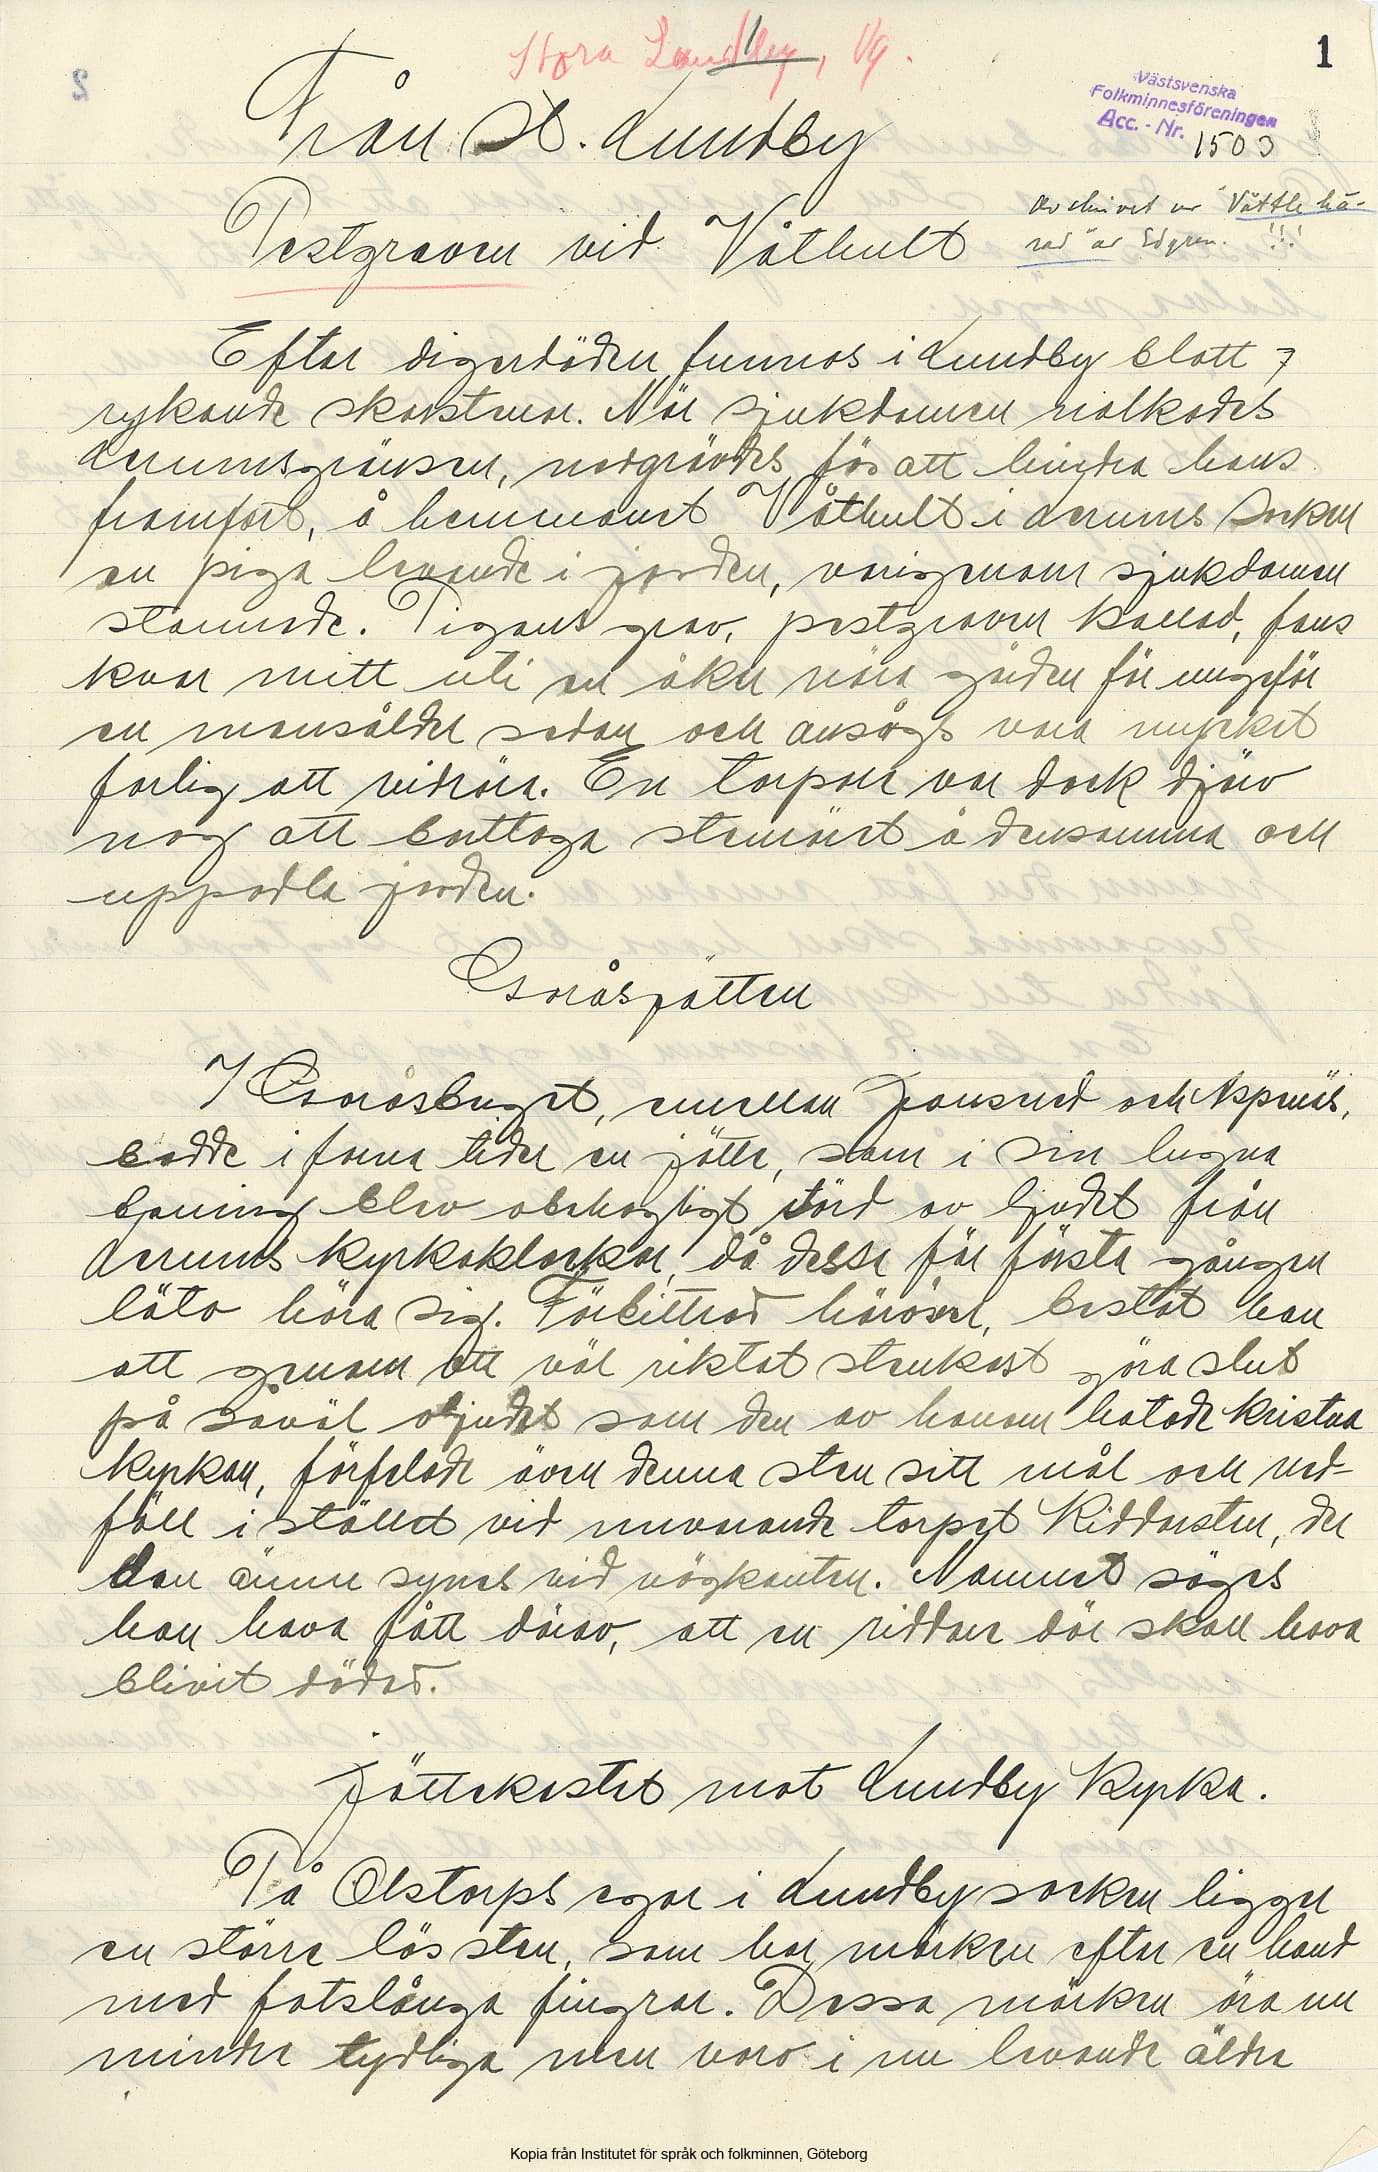 Stora Lundby, Vg.
1
Västsvenska
Folkminnesföreningen
Acc. - Nr. 1503
Från St. Lundby
Avskrivet ur "Vättle hä-
rad" av Edgren. !!!
Pestgraven vid Våthult
Efter digerdöden funnos i Lundby blott 7
rykande skorstenar. När sjukdomen nalkades
Lerumsgränsen, nedgrävdes, för att hindra hans
framfart, å hemmanet Våthult i Lerums socken
en piga levande i jorden, varigenom sjukdomen
stannade. Pigans grav, pestgraven kallad, fans
kvar mitt uti en åker nära gården för ungefär
en mansålder sedan och ansågs vara mycket
farlig att vidröra. En torpare var dock djärv
nog att borttaga stenröret å densamma och
uppodla jorden.
Osråsjätten
I Osråsberget, emellan Jonsered och Aspenäs,
bodde i forna tider en jätte, som i sin lugna
boning blev obehagligt störd av ljudet från
Lerums kyrkoklockor, då dessa för första gången
läto höra sig. Förbittrad häröver, beslöt han
att genom ett väl riktat stenkast göra slut
på såväl oljudet som den av honom hatade kristna
kyrkan, förfelade även denna sten sitt mål och ned-
föll i stället vid nuvarande torpet Riddarsten, der
den ännu synes vid vägkanten. Namnet säges
han hava fått därav, att en riddare där skall hava
blivit dödad.
Jättekastet mot Lundby kyrka.
På Olstorps egor i Lundby socken ligger
en större lös sten, som har märken efter en hand
med fotslånga fingrar. Dessa märken äro nu
mindre tydliga men voro i nu levande äldre
Kopia från Institutet för språk och folkminnen, Göteborg